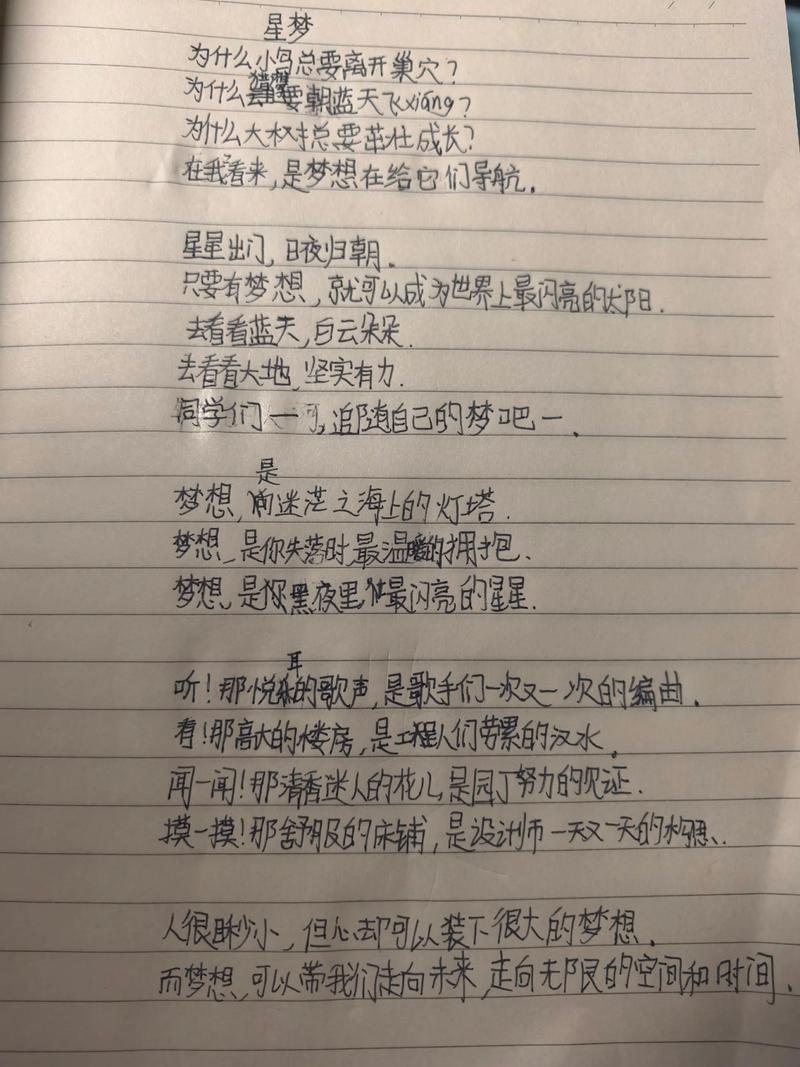 星梦
为什么小鸟总要离开巢穴？
为什么要朝蓝天飞xiáng？
为什么大树总要茁壮成长？
在我看来，是梦想在给它们导航。
星星出门，日夜归朝。
只要有梦想，就可以成为世界上最闪亮的太阳。
去看看蓝天，白云朵朵。
去看看大地，坚实有力。
同学们一可，追随自己的梦吧一、
是
梦想，前迷茫之海上的灯塔.
梦想，是你失落时，最温暖的拥抱、
梦想，是你黑夜里，最闪亮的星星.
耳
听！那悦的歌声，是歌手们一次又一次的编曲.
看！那高大的楼房，是工程人们劳累的汉水。
闻一闻！那清香迷人的花儿，是园丁努力的见证.
摸一摸！那舒服的床铺，是设计师一天又一天的构思、.
人很眇小，但心却可以装下很大的梦想.
而梦想，可以带我们走向未来，走向无限的空间和时间.